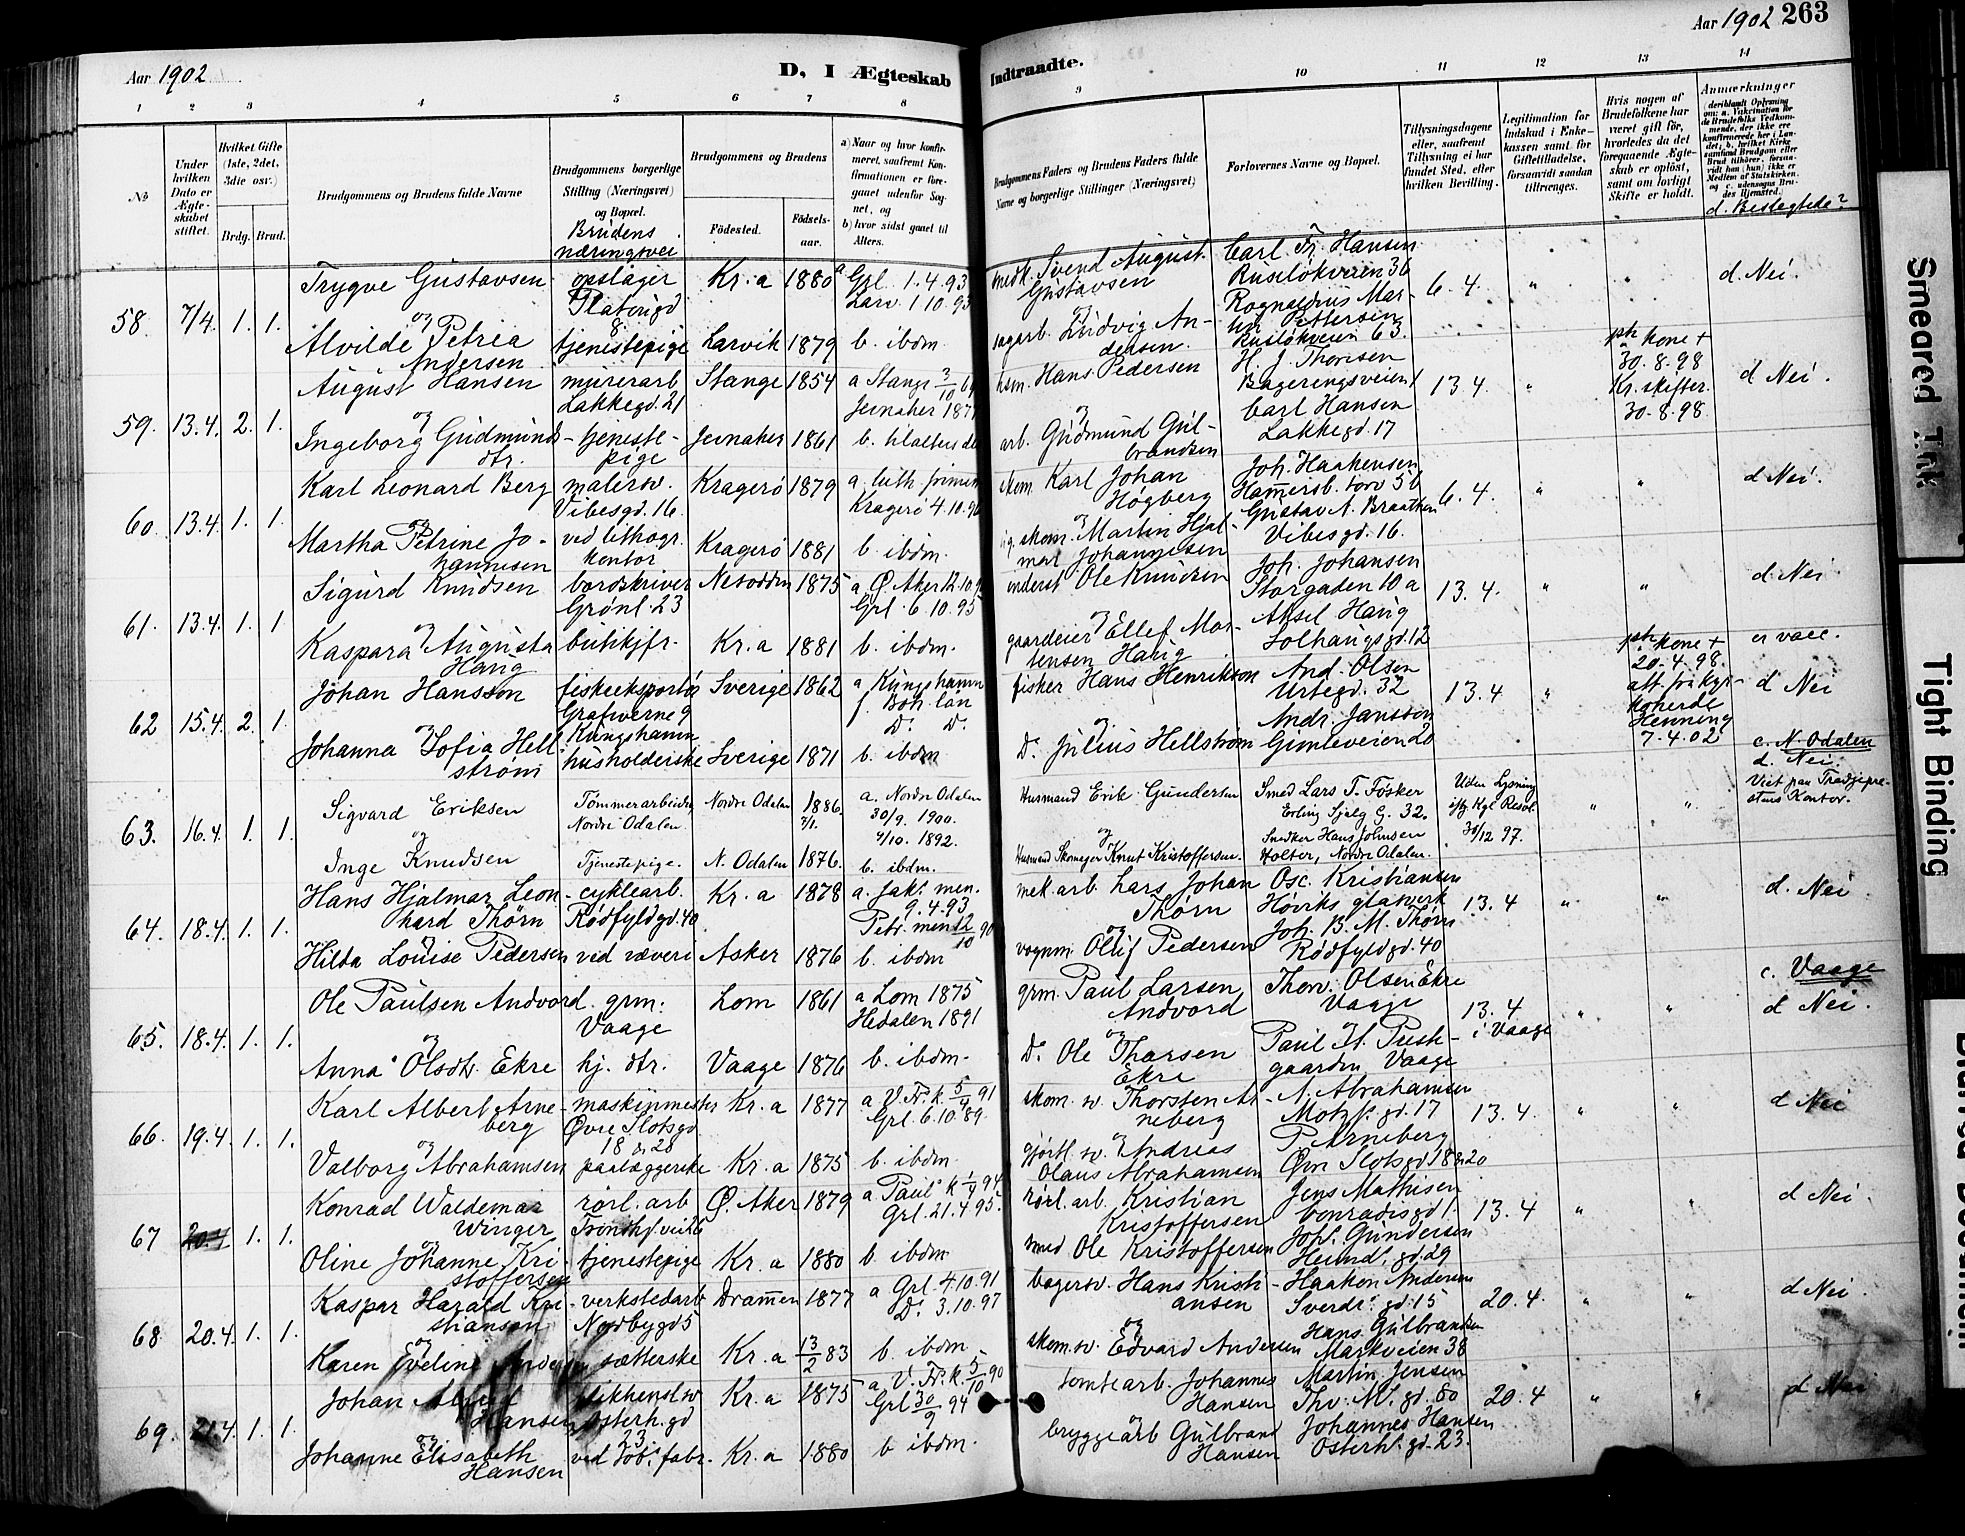 Aar 1902
D, I Ægteskab Indtraadte.
Aar 1902 263
1 2 3 4 5 6 7 8 9 10 11 12 13 14
No
Under hvilken Dato er Ægteskabet stiftet.
Hvilket Gifte (1ste, 2det, 3die osv.)
Brdg. Brud.
Brudgommens og Brudens fulde Navne
Brudgommens borgerlige Stilling (Næringsvei) og Bopæl.
Brudens næringsvei
Brudgommens og Brudens
Fødested.
Fødselsaar.
a) Naar og hvor konfirmeret, saafremt Konfirmationen er foregaaet udenfor Sognet, og
b) hvor sidst gaaet til Alters.
Brudgommens Faders og Brudens Faders fulde Navne og borgerlige Stillinger (Næringsvei)
Forlovernes Navne og Bopæl.
Tillysningsdagene eller, saafremt Tillysning ei har fundet Sted, efter hvilken Bevilling.
Legitimation for Indskud i Enkekassen samt for Giftetilladelse, forsaavidt saadan tiltrænges.
Hvis nogen af Brudefolkene har været gift før, hvorledes da det foregaaende Ægteskab er opløst, samt om lovligt Skifte er holdt.
Anmærkninger
d. Beslegtede?
58. 7/4. 1. 1.
Trygve Gustavsen
og
Alvilde Petria Andersen
tjenestepige
Kr.a 1880
Larvik 1879
a Grl. 1.4.93
Larv. 1.10.93
b. ibdm.
Svend August Gustavsen
og
Ludvig Andersen
Carl Fr. Hansen
Rusløkveien 36
Rusløkveien 63.
6.4. " "
d. Nei.
59. 13.4. 2. 1.
August Hansen
og
Ingeborg Gudmundsdtr.
murerarb
Lakkegd. 21
tjenestepige
Stange 1854
Jevnaker 1861
Hans Pedersen
og
arb. Gudmund Gulbrandsen
H. J. Thoresen
Carl Hansen
Lakkegd. 17
13.4. "
kone +
30.8.98
Kr. skifter.
30.8.98.
d Nei.
60. 13.4. 1. 1.
Karl Leonard Berg
og
Martha Petrine Johannesen
malersv.
Vibesgd. 16.
ved lithogr. kontor
Kragerø 1879
Kragerø 1881
Kragerø 4.10.96
b. ibdm.
Karl Johan Høgberg
og
skom. Martin Hjalmar Johannesen
Joh. Haakensen
Hammersb. torv 5b
Gustav A. Braathen
Vibesgd. 16.
6.4. " "
d Nei.
61. 13.4. 1. 1.
Sigurd Knudsen
og
Kaspara Augusta Haug
Grønl. 23
butikjfr.
Nesodden 1875
Kr.a 1881
a Ø. Aker
Grl. 6.10.95
b. ibdm.
Ole Knudsen
og
gaardeier Ellef Mortensen Haug
Joh. Johansen
Storgaden 10a
Aksel Haug
Solhaugsgd. 12
13.4. " "
d. Nei
er vacc.
62 15.4. 2. 1.
Johan Hansson
og
Johanna Sofia Hellström
fiskeeksportør
Kungshamn
husholderske
Sverige 1862
Sverige 1871
a Kungshamn
Boh. län
Do. Do.
b. ibdm
fisker Hans Henrikson
og
Do. Julius Hellström
And. Olsen
Urtegd. 32
Andr. Jansson
Gimleveien 20
13.4 "
kone +
20.4.98.
att. fra kyrkoherde
Henning
7.4.02
d Nei
63. 16.4. 1. 1.
Sigvard Eriksen
og
Inge Knudsen
Tømmerarbeider,
Nordre Odalen
Tjenestepige.
Nordre Odalen 1886. 2/1.
N. Odalen 1876.
a. Nordre Odalen
30/9. 1900.
4/10. 1892.
b. ibdm.
Husmand Erik Gundersen
og
Husmand Skomager Knut Kristoffersen.
Smed Lars T. Fosker
Erling Sjalg G. 32.
Snedker Hans Johnsen
Holter, Nordre Odalen.
Uden Lysning
ifg. Kgl. Resol.
30/12 97.
" "
c. N. Odalen
d. Nei.
64. 18.4. 1. 1.
Hans Hjalmar Leonhard Thørn
og
Hilda Louise Pedersen
cyklearb.
Rødfyldgd. 40
ved væveri
Kr.a 1878
Asker 1876
a. Jak. men.
9.4.93
Petr. men 12/10 90
b. ibdm
mek. arb. Lars Johan Thørn
og
vognm. Oluf Pedersen
Osc. Kristiansen
Høviks glasverk
Joh. B. M. Thørn
Rødfyldgd. 40
13.4 " "
d. Nei
65. 18.4. 1. 1.
Ole Paulsen Andvord
og
Anna Olsdtr. Ekre
grm.
Vaage
hj. dtr.
Lom 1861
Vaage 1876
a Lom 1875
Hedalen 1891
b. ibdm.
grm. Paul Larsen Andvord
og
Do. Ole Tharsen Ekre
Thorv. Olsen Ekre
Vaage
Vaage
13.4
i Vaage
" "
c. Vaage
d Nei.
66. 19.4. 1. 1.
Karl Albert Arneberg
og
Valborg Abrahamsen
maskinmester
Øvre Slotsgd.
paalæggerske
Kr.a 1877
Kr.a 1875
a V. Fr. k. 5/4 91
Grl. 6.10.89.
b. ibdm.
skom. sv. Thorsten Arneberg
og
Andreas Olaus Abrahamsen
A. Abrahamsen
Motzf. gd. 17
P. Arneberg
13.4. " "
d Nei
67 20.4 1. 1.
Konrad Waldemar Winger
og
Oline Johanne Kristoffersen
rørl. arb
tjenestepige
Ø. Aker 1879
Kr.a 1880
Grl. 21.4.95.
b ibdm.
rørl. arb. Kristian Kristoffersen
smed Ole Kristoffersen
Jens Mathisen
Conradisgd 1.
Joh. Gundersen
Heimd. gd. 29
13.4 " "
d Nei.
68 20.4. 1. 1.
Kaspar Harald Kristiansen
og
Karen Eveline Andersen
verkstedarb
Nordbygd 5
sætterske
Drammen 1877
Kr.a 13/2 83
a Grl. 4.10.91
Do. 3.10.97
b. ibdm.
bagersv. Hans Kristiansen
og
skom. sv. Edvard Andersen
Haakon Andersen
Sverdr. gd. 15
Hans Gulbrandsen
Markveien 38
20.4. " "
d Nei
69. 21.4 1. 1.
Johan Hansen
og
Johanne Elisabeth Hansen
Osterh. gd
23
ved tob. fabr.
Kr.a 1875
Kr.a 1880
a. V. Fr. k. 5/10 90
Grl 30/9 94
b ibdm.
tomtearb. Johannes Hansen
og
bryggearb Gulbrand Hansen
Martin Jensen
Thv. M. gd. 80
Johannes Hansen
Osterh. gd. 23.
20.4 " "
d Nei
Smeared Ink
Tight Binding